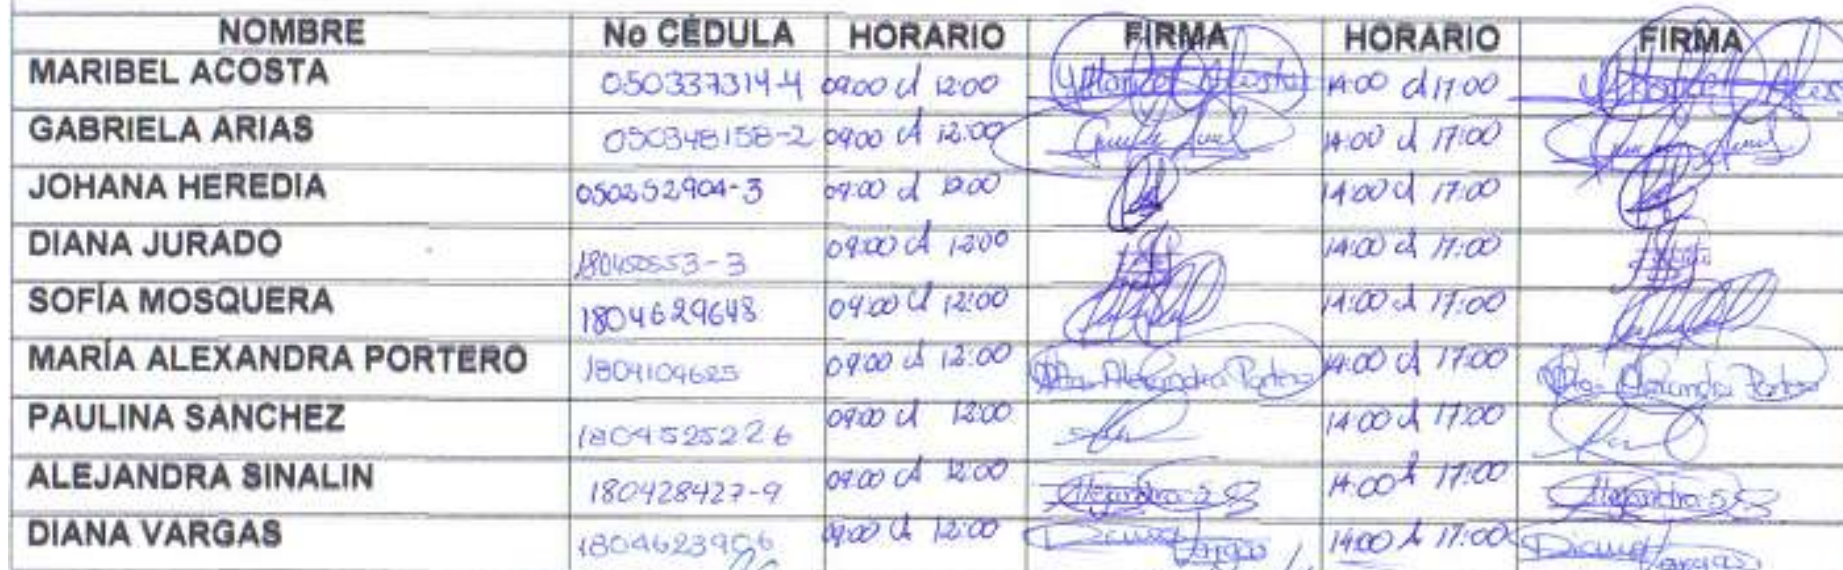 NOMBRE No CÉDULA HORARIO FIRMA HORARIO FIRMA
MARIBEL ACOSTA 050337314-4 09:00 a 12:00 Maribel Acosta 14:00 a 17:00
GABRIELA ARIAS 050348158-2 09:00 a 12:00 14:00 a 17:00
JOHANA HEREDIA 050252904-3 09:00 a 12:00 14:00 a 17:00
DIANA JURADO 180450553-3 09:00 a 12:00 14:00 a 17:00
SOFÍA MOSQUERA 1804629648 09:00 a 12:00 14:00 a 17:00
MARÍA ALEXANDRA PORTERO 1804109625 09:00 a 12:00 Ma. Alexandra Portero 14:00 a 17:00 Ma. Alexandra Portero
PAULINA SÁNCHEZ 1804525226 09:00 a 12:00 14:00 a 17:00
ALEJANDRA SINALIN 180428427-9 09:00 a 12:00 Alejandra S 14:00 a 17:00 Alejandra S
DIANA VARGAS 1804623906 09:00 a 12:00 Diana Vargas 14:00 a 17:00 Diana Vargas